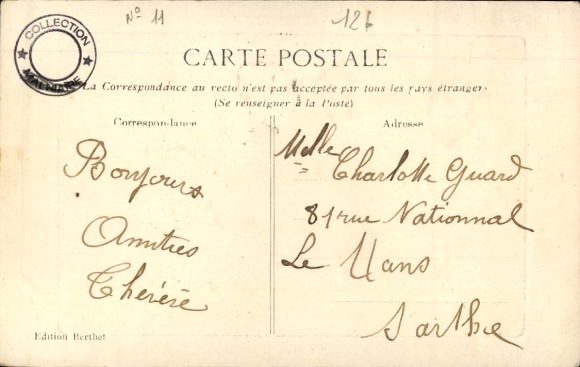 Nº 11
126
COLLECTION
MALHAIRE
CARTE POSTALE
La Correspondance au recto n'est pas acceptée par tous les pays étrangers
(Se renseigner à la Poste)
Correspondance
Adresse
Bonjours
Amitiés
Thérèse
Melle Charlotte Guard
81 rue Nationnal
Le Mans
Sarthe
Edition Berthet